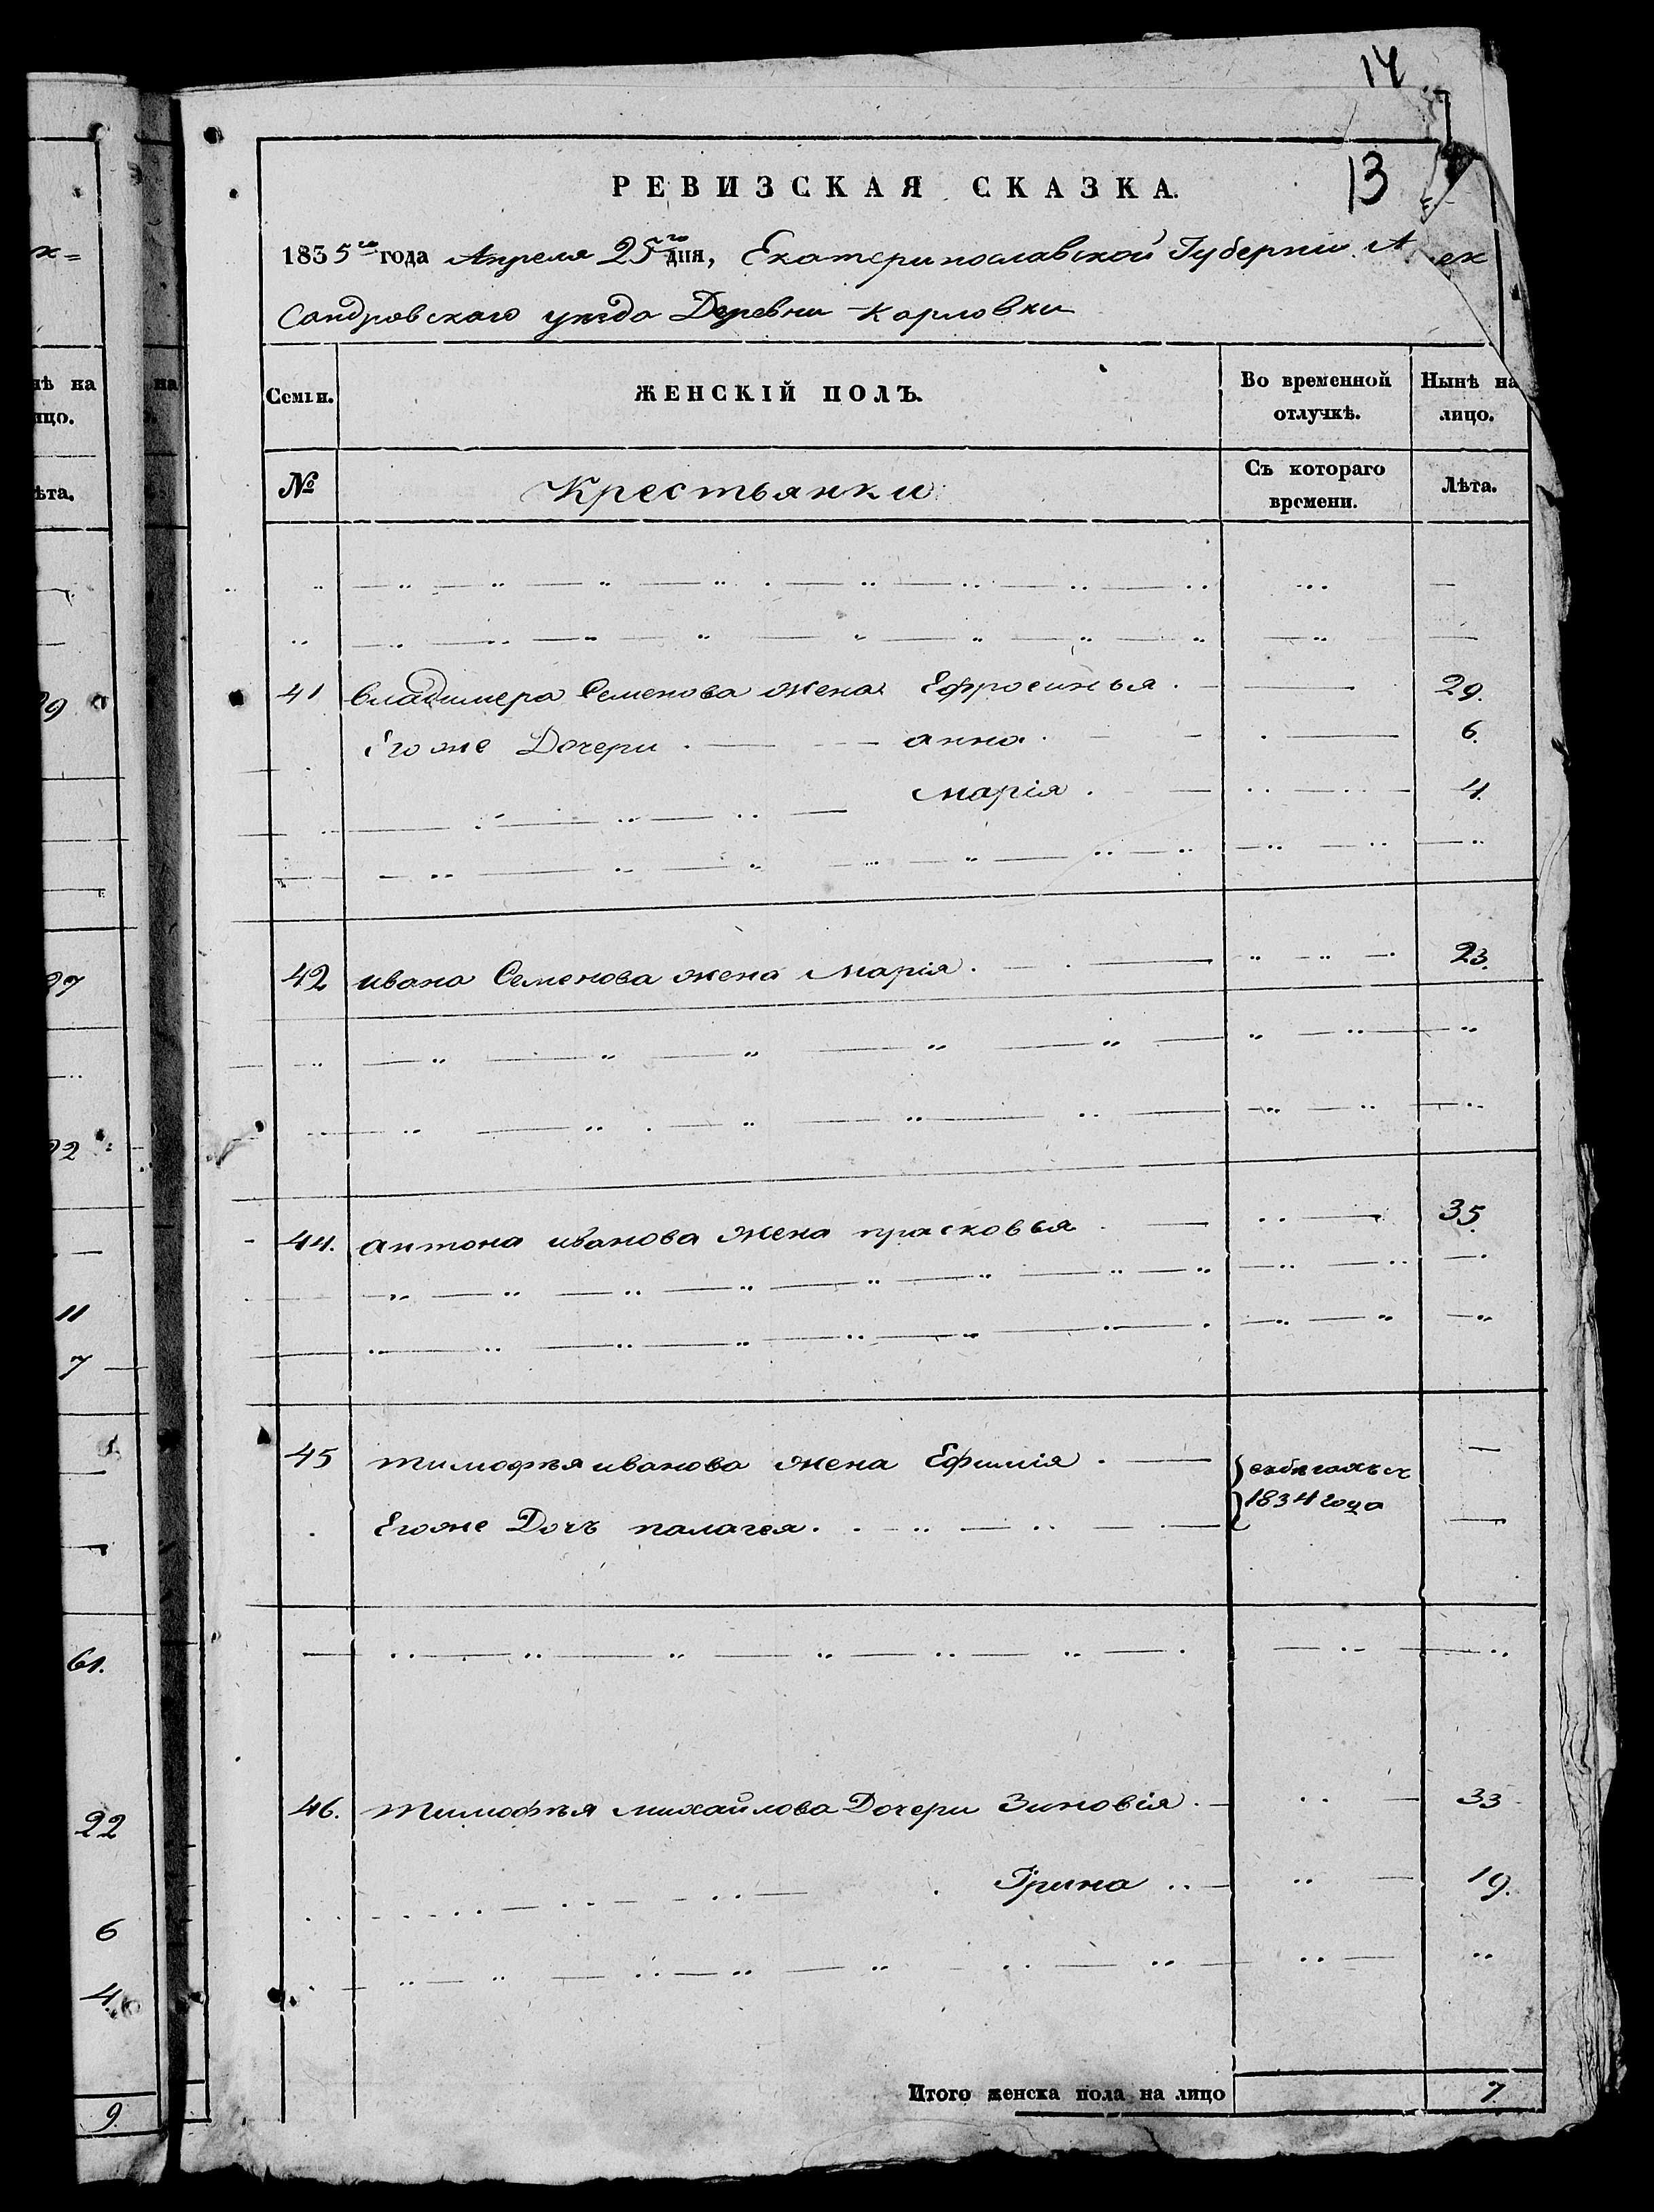 14
13
РЕВИЗСКАЯ СКАЗКА.
1835го года Апреля 25го дня, Екатеринославской Губернии А ек
сандровскаго уезда Деревни Карловки
Семьи. ЖЕНСКІЙ ПОЛЪ. Во временной отлучкѣ. Нынѣ на лицо.
№ Крестьянки Съ котораго времени. Лѣта.
41 Владимера Семенова жена Ефросинья 29.
Его же Дочери анна 6.
марія 4.
42 ивана Семенова жена марія 23.
44. антона иванова жена прасковья 35.
45 тимофѣя иванова жена Ефимія
1834 года
Его же Дочь палагея
46. тимофѣя михайлова Дочери Зиновія 33
Ірина 19.
Итого женска пола на лицо 7.
нѣ на
лицо.
ѣта.
29
27
22
11
7
61.
22
6
4
9.